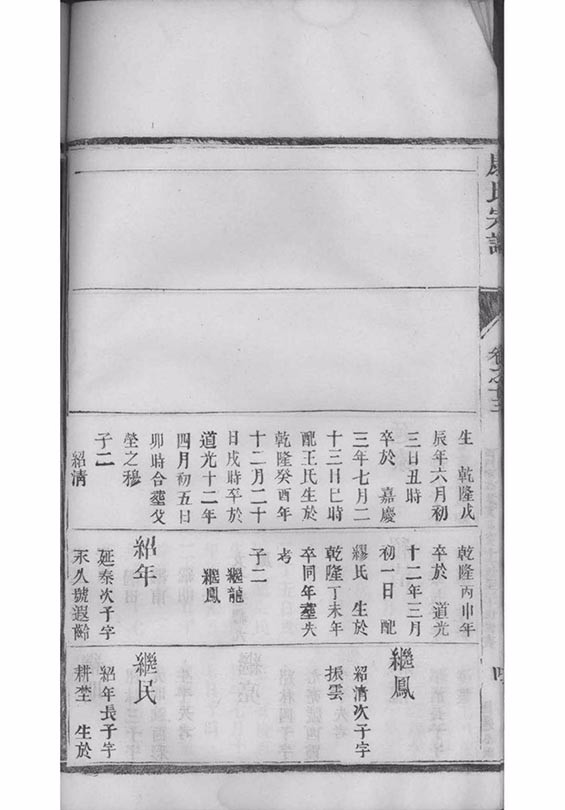 氏宗譜
卷之十三
生　乾隆戊
辰年六月初
三日丑時
卒於　嘉慶
三年七月二
十三日巳時
配王氏生於
乾隆癸酉年
十二月二十
日戌時卒於
道光十二年
四月初五日
卯時合塟父
塋之穆
子二
紹清
乾隆丙申年
卒於　道光
十二年三月
初一日　配
繆氏　生於
乾隆丁未年
卒同年塟失
考
子二
繼龍
繼鳳
紹年
延泰次子字
永久號遐齡
繼鳳
紹清次子字
振雲
繼民
紹年長子字
耕埜　生於